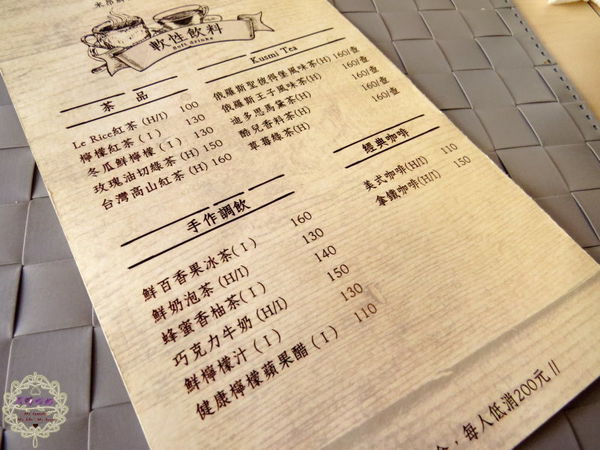 軟性飲料
Soft drinks
茶 品
Le Rice紅茶 (H/I) 100
檸檬紅茶 ( I ) 130
冬瓜鮮檸檬 ( I ) 130
玫瑰油切綠茶 (H) 150
台灣高山紅茶 (H) 160
Kusmi Tea
俄羅斯聖彼得堡風味茶(H) 160/壺
俄羅斯王子風味茶(H) 160/壺
迪多思馬黛茶(H) 160/壺
酷兒香料茶(H) 160/壺
草莓綠茶(H)
經典咖啡
美式咖啡(H/I) 110
拿鐵咖啡(H/I) 150
手作調飲
鮮百香果冰茶( I ) 160
鮮奶泡茶 (H/I) 130
蜂蜜香柚茶( I ) 140
巧克力牛奶 (H/I) 150
鮮檸檬汁 ( I ) 130
健康檸檬蘋果醋 ( I ) 110
，每人低消200元 //